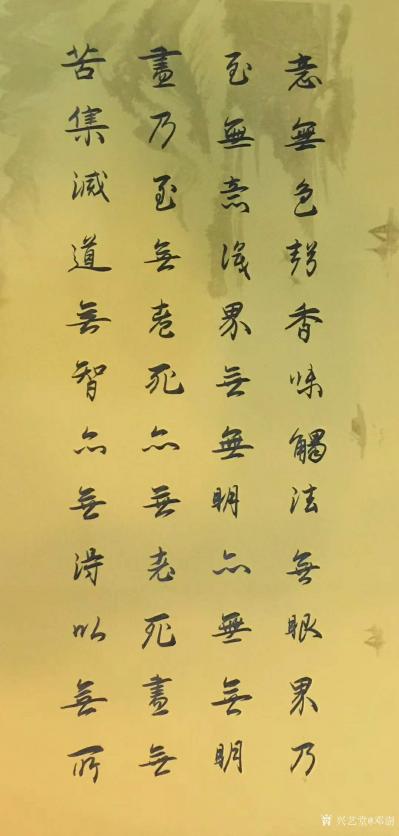 意無色聲香味觸法無眼界乃
至無意識界無無明亦無無明
盡乃至無老死亦無老死盡無
苦集滅道無智亦無得以無所
兴艺堂@邓澍